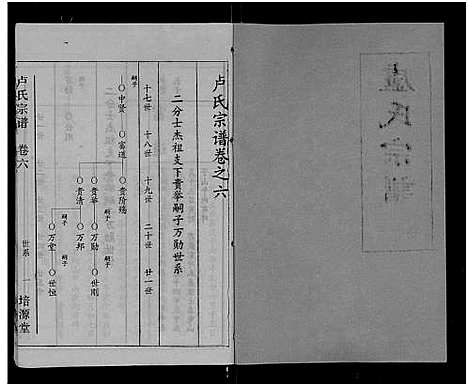 盧氏宗譜
卢氏宗谱卷之六
二分士杰祖支下贵举嗣子万勋世系
十七世 十八世 十九世 二十世 廿一世
嗣子
中贤 富道 贵阶殇
贵举 嗣子 万勋 嗣子 世刚
贵清 万邦
嗣子 万堂 嗣子 世恒
卢氏宗谱 卷六 世系 一 培源堂